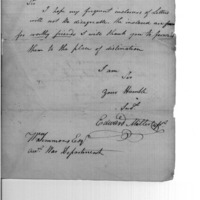 Sir
I hope my frequent inclosures of Letters
will not be disagreeable. The inclosed are from
for worthy friends I will thank you to forward
them to the place of destination
I am
Sir
Your Humble
Servt
Edward Miller Capt
Wm Simmons Esqr
War Department